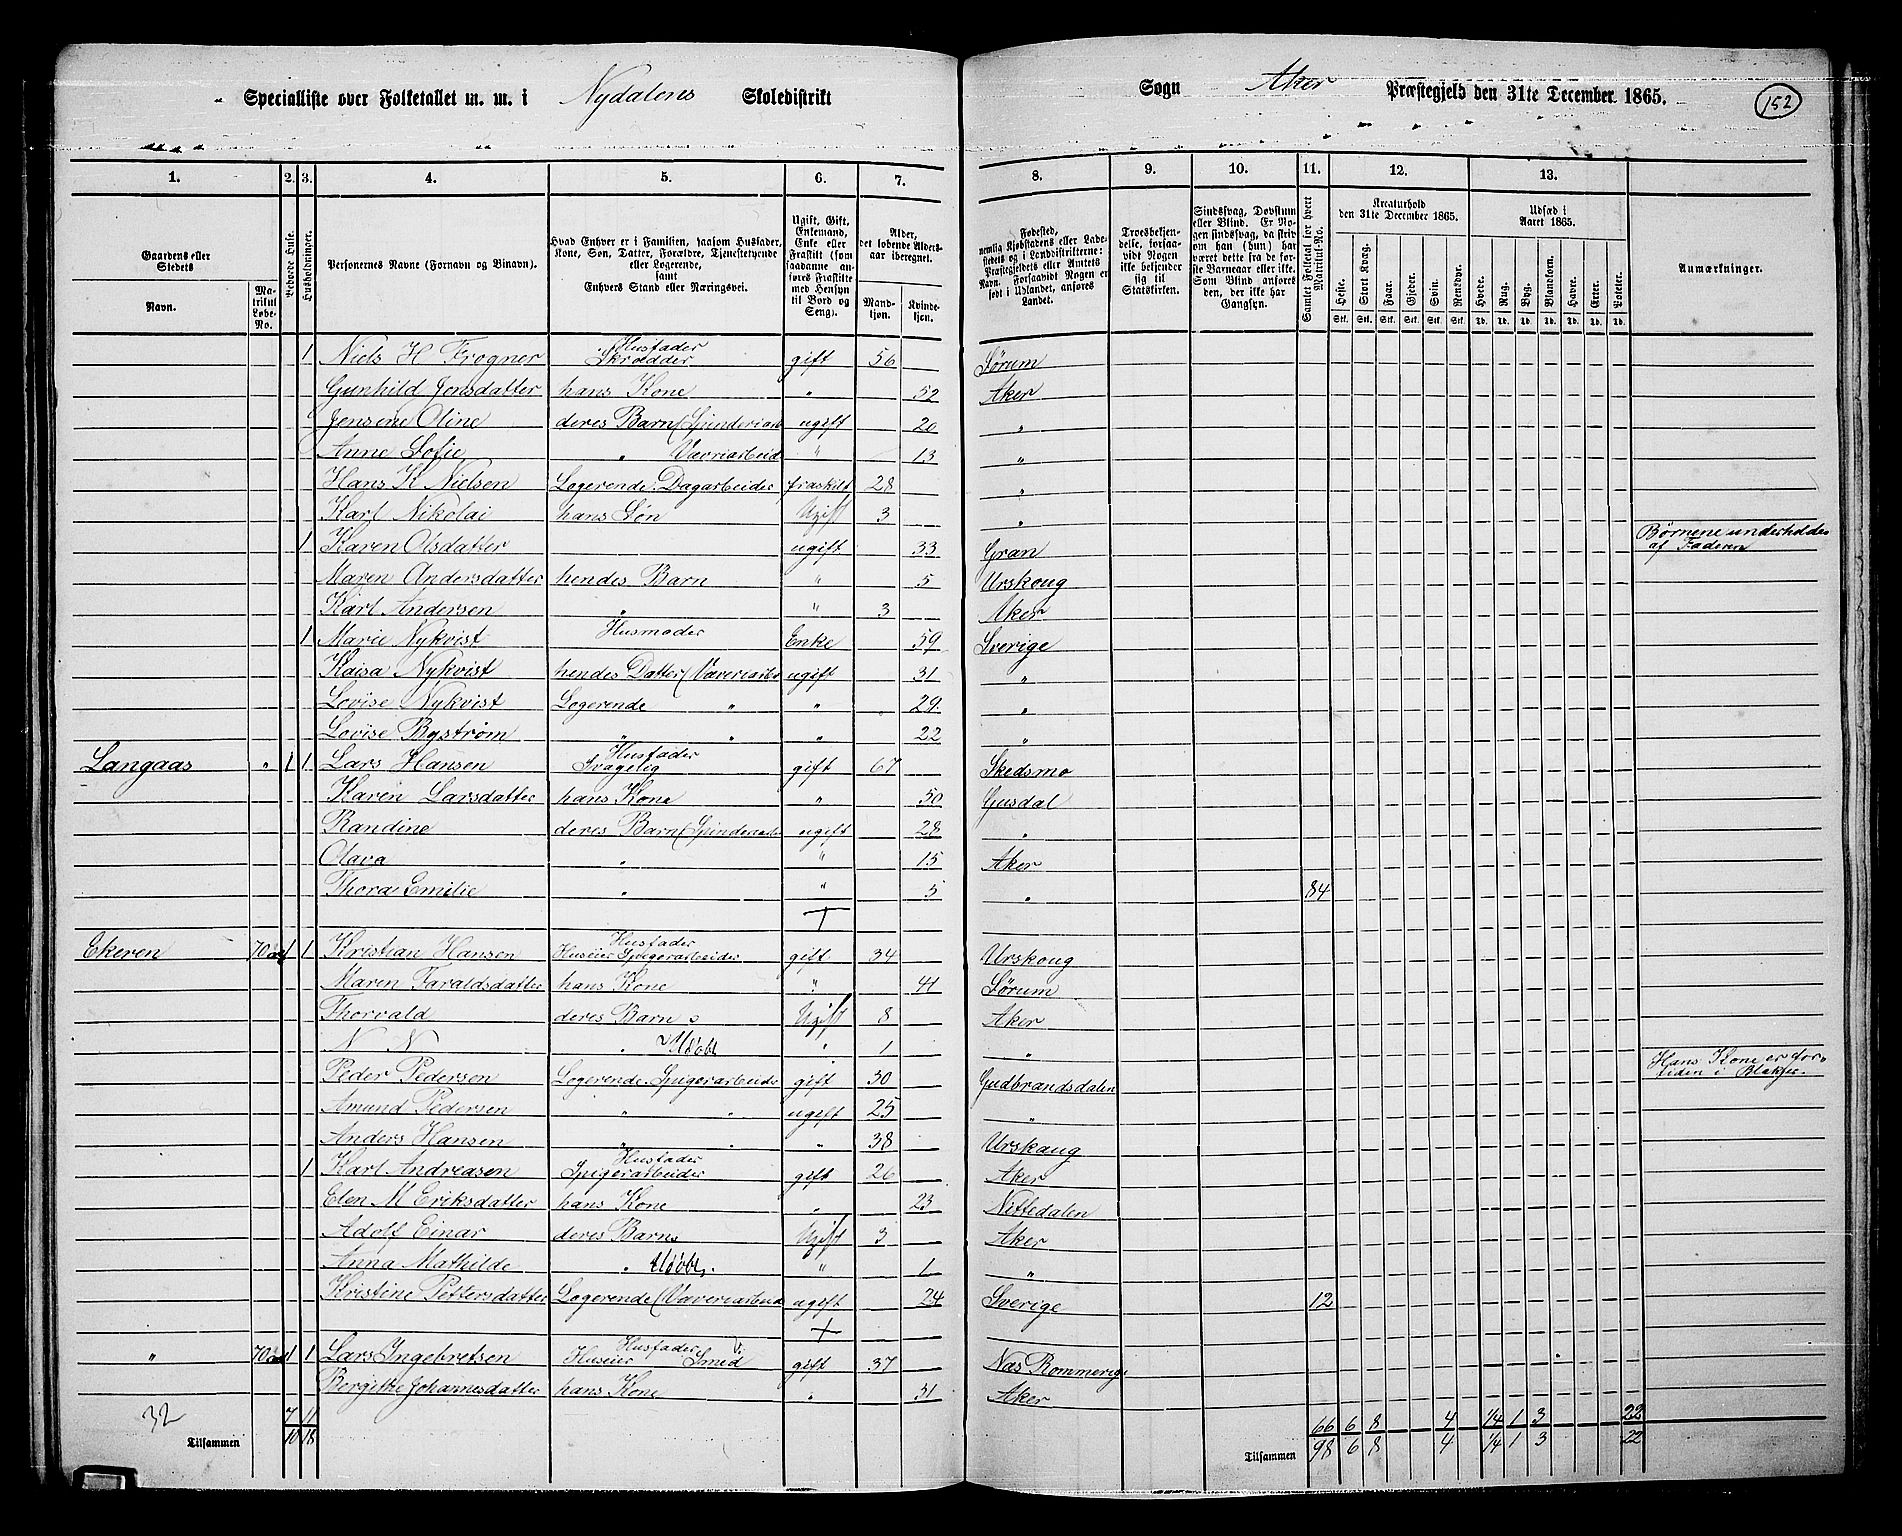 Specialliste over Folketallet m. m. i Nydalens Skoledistrikt Sogn Aker Præstegjeld den 31te December 1865. 152
1. 2. 3. 4. 5. 6. 7. 8. 9. 10. 11. 12. 13.
Gaardens eller Stedets
Navn.
Matrikul Løbe-No.
Beboede Huse.
Husholdninger.
Personernes Navne (Fornavn og Binavn).
Hvad Enhver er i Familien, saasom Husfader, Kone, Søn, Datter, Forældre, Tjenestetyende eller Logerende,
samt
Enhvers Stand eller Næringsvei.
Ugift, Gift, Enkemand, Enke eller Fraskilt (som saadanne anføres Fraskilte med Hensyn til Bord og Seng).
Alder, det løbende Alders-aar iberegnet.
Mand-kjøn. Kvinde-kjøn.
Fødested, nemlig Kjøbstadens eller Ladestedets og i Landdistrikterne: Præstegjeldets eller Amtets Navn. Forsaavidt Nogen er født i Udlandet, anføres Landet.
Troesbekjendelse, forsaavidt Nogen ikke bekjender sig til Statskirken.
Sindssvag, Døvstum eller Blind. Er Nogen sindssvag, da skriv om han (hun) har været dette fra de første Barneaar eller ikke. Som Blind anføres den, der ikke har Gangsyn.
Samlet Folketal for hvert Matrikul-No.
Kreaturhold den 31te December 1865.
Heste. Stort Kvæg. Faar. Gjeder. Svin. Rensdyr.
Udsæd i Aaret 1865.
Hvede. Rug. Byg. Blandkorn. Havre. Erter. Poteter.
Anmærkninger.
1 Niels H Frogner Husfader Skrædder gift 56 Sørum
Gunhild Jensdatter hans Kone " 52 Aker
Jensine Oline deres Barn (Spinderiarb ugift 20 "
Anne Sofie " Væveriarbeid " 13 "
Hans K Nielsen Logerende. Dagarbeider fraskilt 28 "
Karl Nikolai hans Søn Ugift 3 "
1 Karen Olsdatter ugift 33 Gran Børnene underholdes af Faderen
Maren Andersdatter hendes Barn " 5 Urskoug
Karl Andersen " " 3 Aker
1 Marie Nykvist Husmoder Enke 59 Sverige
Kaisa Nykvist hendes Datter (Væveriarb ugift 31 "
Lovise Nykvist Logerende " " 29 "
Lovise Bystrøm " " " 22 "
Langaas " 1 1 Lars Hansen Husfader Svagelig gift 67 Skedsmo
Karen Larsdatter hans Kone " 50 Gusdal
Randine deres Barn (Spinderiarb ugift 28 "
Olava " " 15 Aker
Thora Emilie " " 5 " 84
Ekeren 70 1 1 Kristian Hansen Husfader Huseier Spigerarbeider gift 34 Urskoug
Maren Faraldsdatter hans Kone " 41 Sørum
Thorvald deres Barn Ugift 8 Aker
N N " Udøbt " 1 "
Peder Pedersen Logerende. Spigerarbeide gift 30 Gudbrandsdalen Hans Kone er for tiden i Blakjer.
Amund Pedersen " " ugift 25 "
Anders Hansen " " " 38 Urskaug
1 Karl Andreasen Husfader Spigerarbeider gift 26 Aker
Elen M Eriksdatter hans Kone " 23 Nittedalen
Adolf Einar deres Barn Ugift 3 Aker
Anna Mathilde " Udøbt. " 1 "
Kristine Pettersdatter Logerende (Væveriarbeid ugift 24 Sverige 12
" 70 1 1 Lars Ingebretsen Husfader Huseier Smed gift 37 Næs Rommerige
Bergitte Johannesdatter hans Kone " 31 Aker
32 7 11 66 6 8 4 1/4 1 3 22
Tilsammen 10 18 Tilsammen 98 6 8 4 1/4 1 3 22